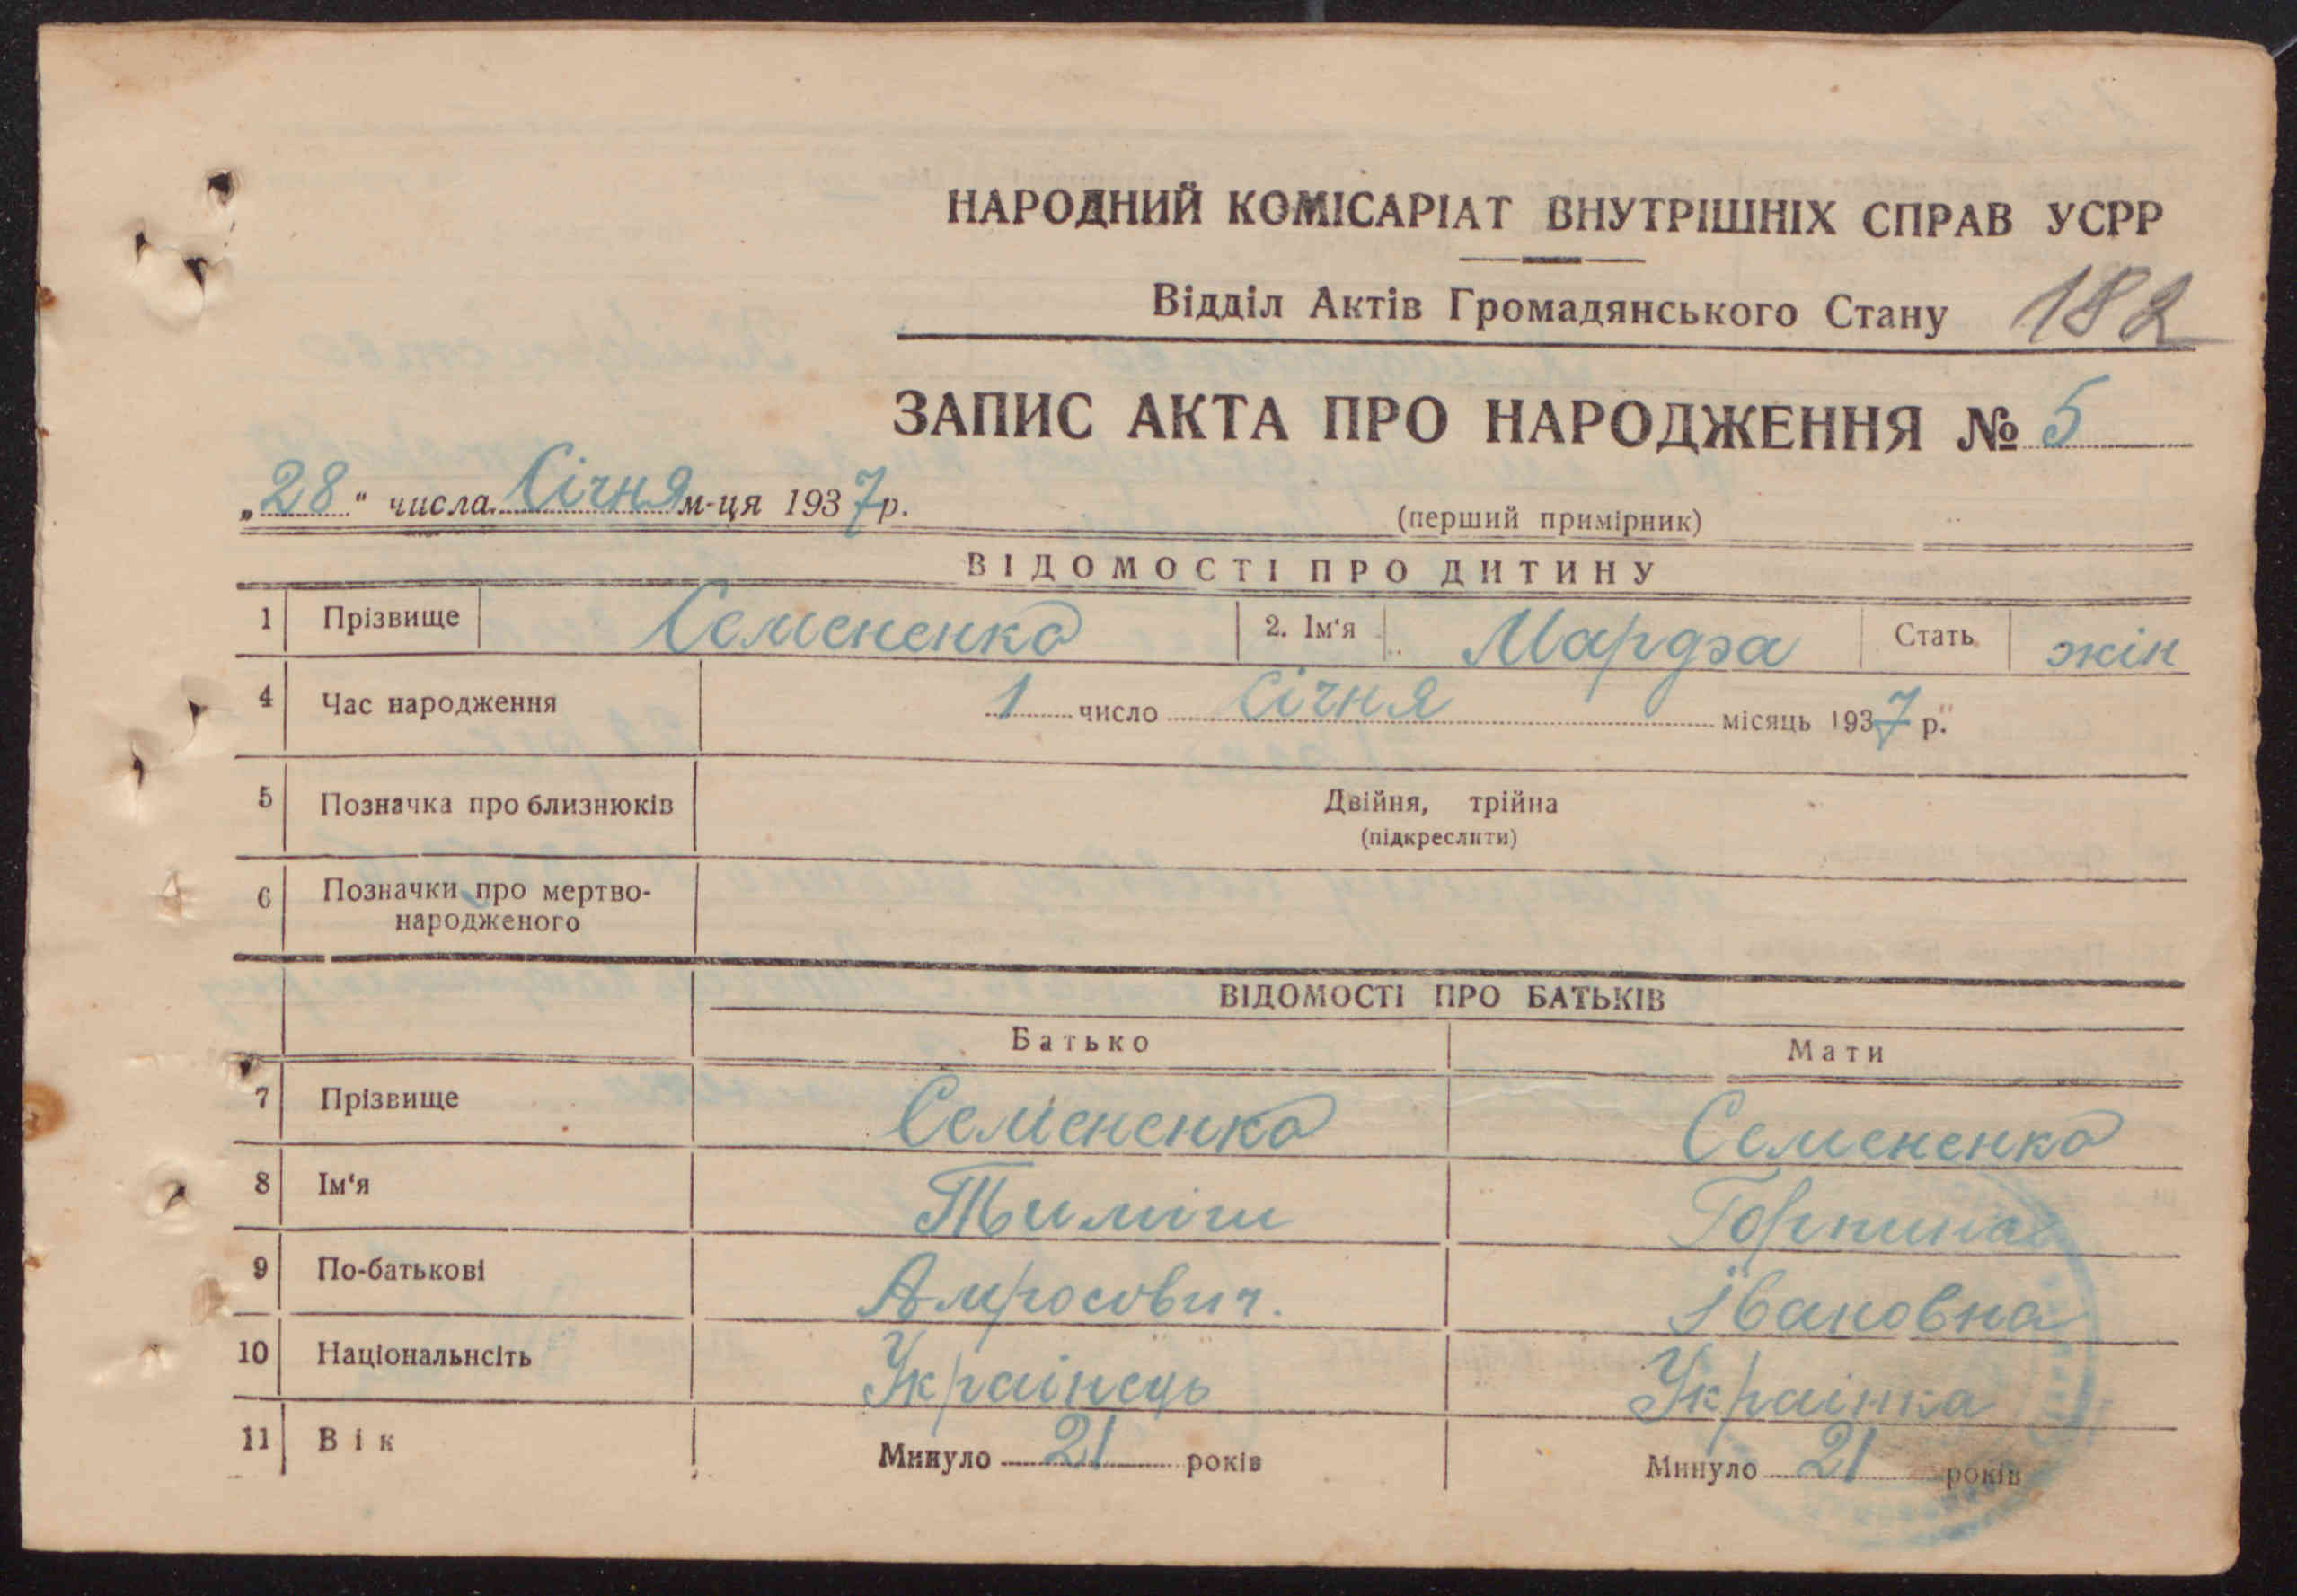 НАРОДНИЙ КОМІСАРІАТ ВНУТРІШНІХ СПРАВ УСРР
Відділ Актів Громадянського Стану 182
ЗАПИС АКТА ПРО НАРОДЖЕННЯ № 5
„28“ числа Січня м-ця 1937р.
(перший примірник)
ВІДОМОСТІ ПРО ДИТИНУ
1 Прізвище Семененко 2. Ім‘я Стать жін
4 Час народження 1 число Січня місяць 1937 р.
5 Позначка про близнюків Двійня, трійна
(підкреслити)
6 Позначки про мертво-
народженого
ВІДОМОСТІ ПРО БАТЬКІВ
Батько Мати
7 Прізвище Семененко Семененко
8 Ім‘я Тиміш Горпина
9 По-батькові Амросович. Івановна
10 Національнсіть Украінець Украінка
11 Вік Минуло 21 років Минуло 21 років